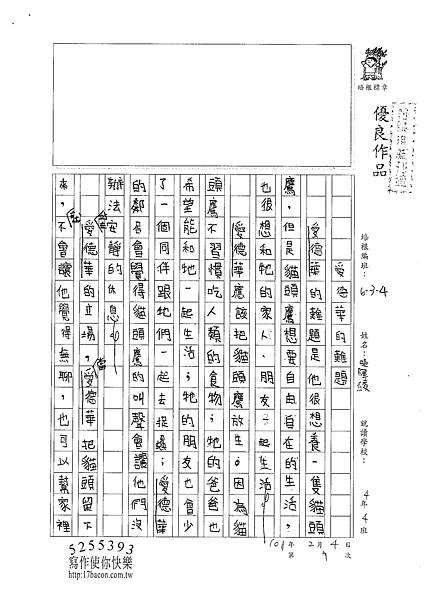 培根標章
優良作品
培根編班：6-3-4 姓名： 就讀學校：4年4班
101年2月4日
第9次
愛德華的難題
愛德華的難題是他很想養一隻貓頭
鷹，但是貓頭鷹想要自由自在的生活，
也很想和牠的家人、朋友一起生活。
愛德華應該把貓頭鷹放生。因為貓
頭鷹不習慣吃人類的食物；牠的爸爸也
希望能和牠一起生活；牠的朋友也會少
了一個同伴跟牠們一起去捉蟲；愛德華
的鄰居會覺得貓頭鷹的叫聲會讓他們沒
辦法安靜的休息。
愛德華的立場，當愛德華把貓頭留下
來，不會讓他覺得無聊，也可以幫家裡
5255393
寫作使你快樂
http://17bacon.com.tw